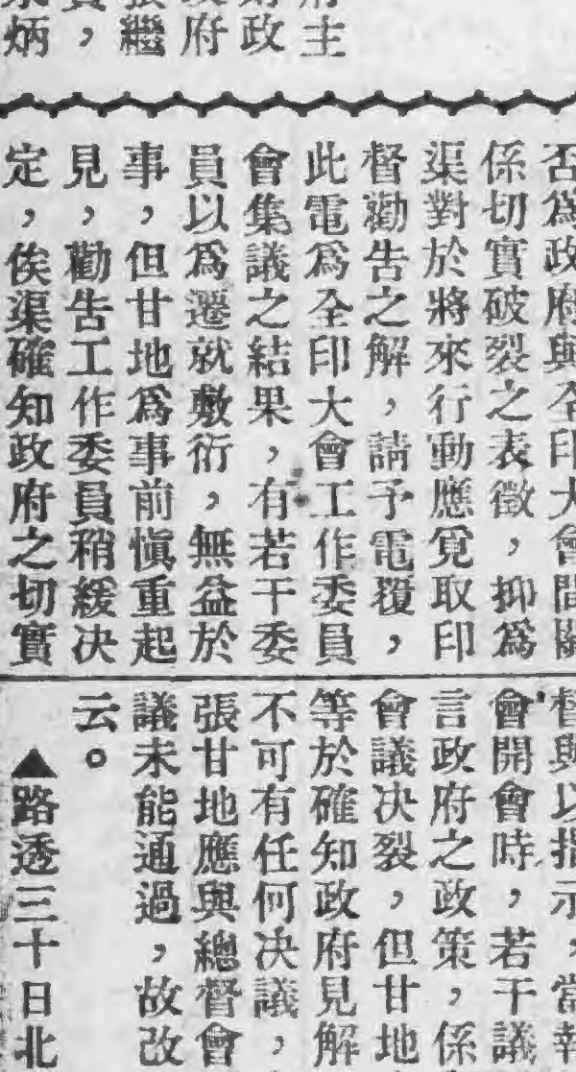 府主
府政
張繼
責，
炳
否爲政府與全印大會間關
係切實破裂之表徵，抑爲
渠對於將來行動應覓取印
督勸告之解，請予電覆，
此電爲全印大會工作委員
會集議之結果，有若干委
員以爲遷就敷衍，無益於
事，但甘地爲事前愼重起
見，勸告工作委員稍緩决
定，俟渠確知政府之切實
督與以指示，當報
會開會時，若干議
言政府之政策，係
會議决裂，但甘地
等於確知政府見解
不可有任何决議，
張甘地應與總督會
議未能通過，故改
云。
▲路透三十日北